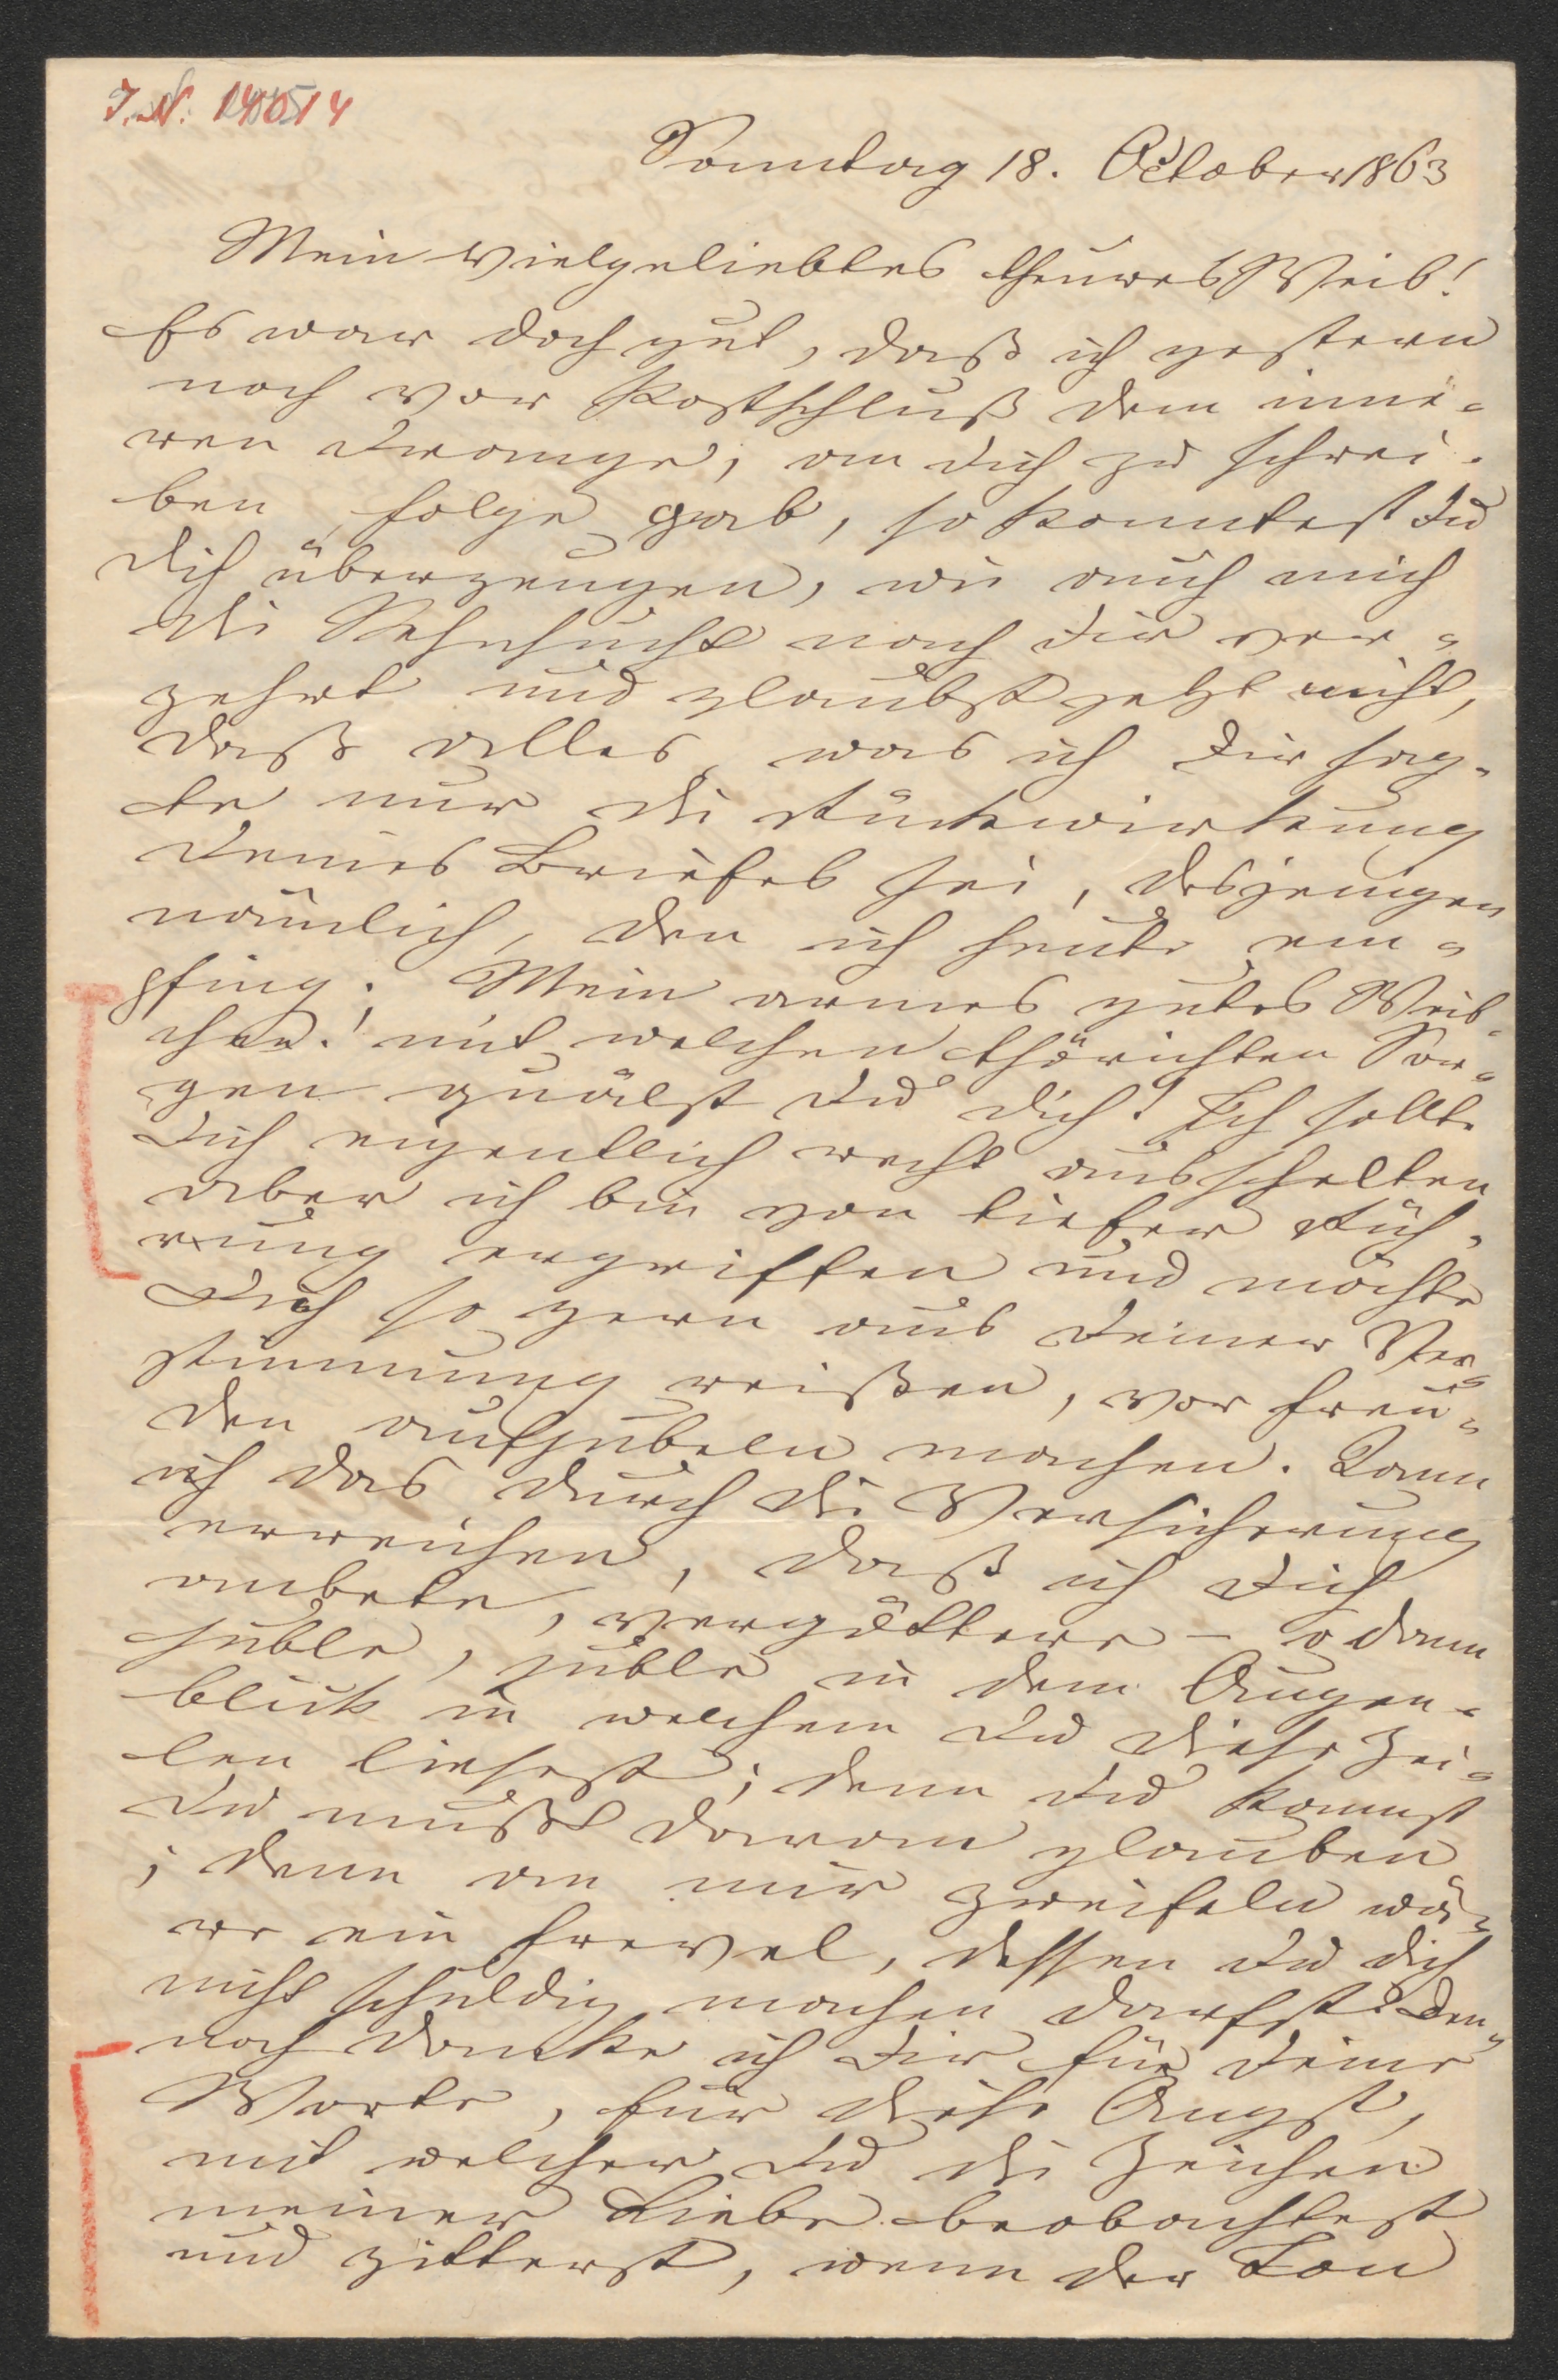 I. N. 141514
Sonntag 18. October 1863
Mein vielgeliebtes theures Weib!
Es war doch gut, daß ich gestern
noch vor Postschluß dem inne-
ren Drange, an Dich zu schrei-
ben, Folge gab, so konntest Du
Dich überzeugen, wie auch mich
die Sehnsucht nach Dir ver-
zehrt und glaubst jetzt nicht,
daß alles, was ich Dir sag-
te nur die Rückwirkung
Deines Briefes sei, desjenigen
nämlich, den ich heute em-
pfing. Mein armes gutes Weib-
chen! mit welchen thörichten Sor-
gen quälst Du Dich! Ich sollte
Dich eigentlich recht ausschelten
aber ich bin von tiefer Rüh-
rung ergriffen und möchte
Dich so gern aus Deiner Ver-
stimmung reißen, vor Freu-
den aufjubeln machen. Kann
ich das durch die Versicherung
erreichen, daß ich Dich
anbete, vergöttere – o dann
juble, juble in dem Augen-
blick in welchem Du diese Zei-
len liesest; denn Du kannst
Du mußt daran glauben
; denn an mir zweifeln wä-
re ein Frevel, dessen Du Dich
nicht schuldig machen darfst. Den-
noch danke ich Dir für Deine
Worte, für diese Angst,
mit welcher Du die Zeichen
meiner Liebe beobachtest
und zitterst, wenn der Ton